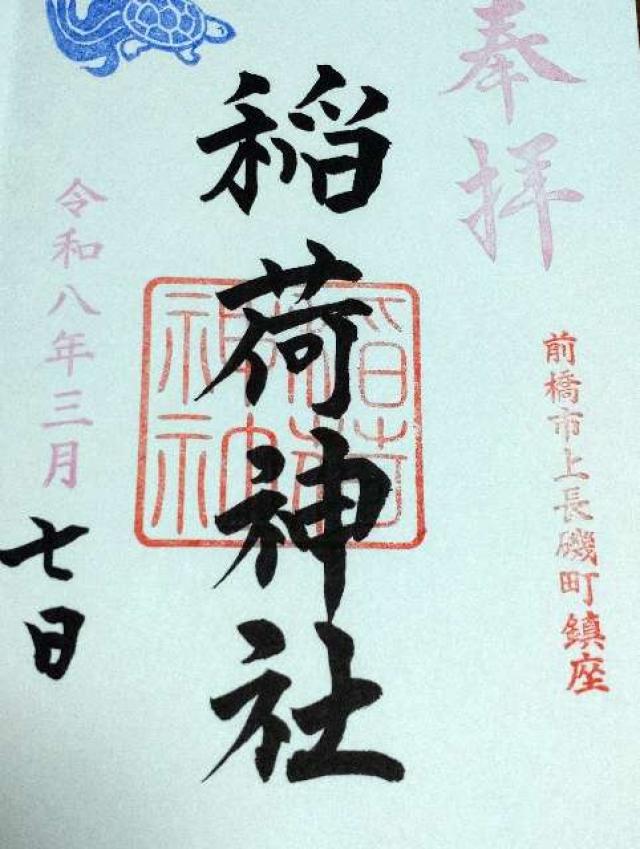 奉拝
前橋市上長磯町鎮座
稲荷神社
令和八年三月
七日